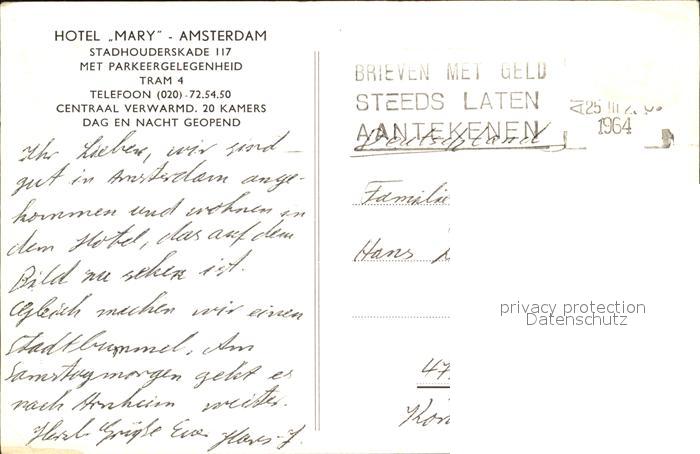 HOTEL „MARY" - AMSTERDAM
STADHOUDERSKADE 117
MET PARKEERGELEGENHEID
TRAM 4
TELEFOON (020) - 72.54.50
CENTRAAL VERWARMD. 20 KAMERS
DAG EN NACHT GEOPEND
Ihr Lieben, wir sind
gut in Amsterdam ange-
kommen und wohnen in
dem Hotel, das auf dem
Bild zu sehen ist.
Gleich machen wir einen
Stadtbummel. Am
Samstagmorgen geht es
nach Arnheim weiter.
Herzl. Grüße Eure Hans-J.
BRIEVEN MET GELD
STEEDS LATEN
AANTEKENEN
25 III
1964
Deutschland
Familie
Hans
47
privacy protection
Datenschutz